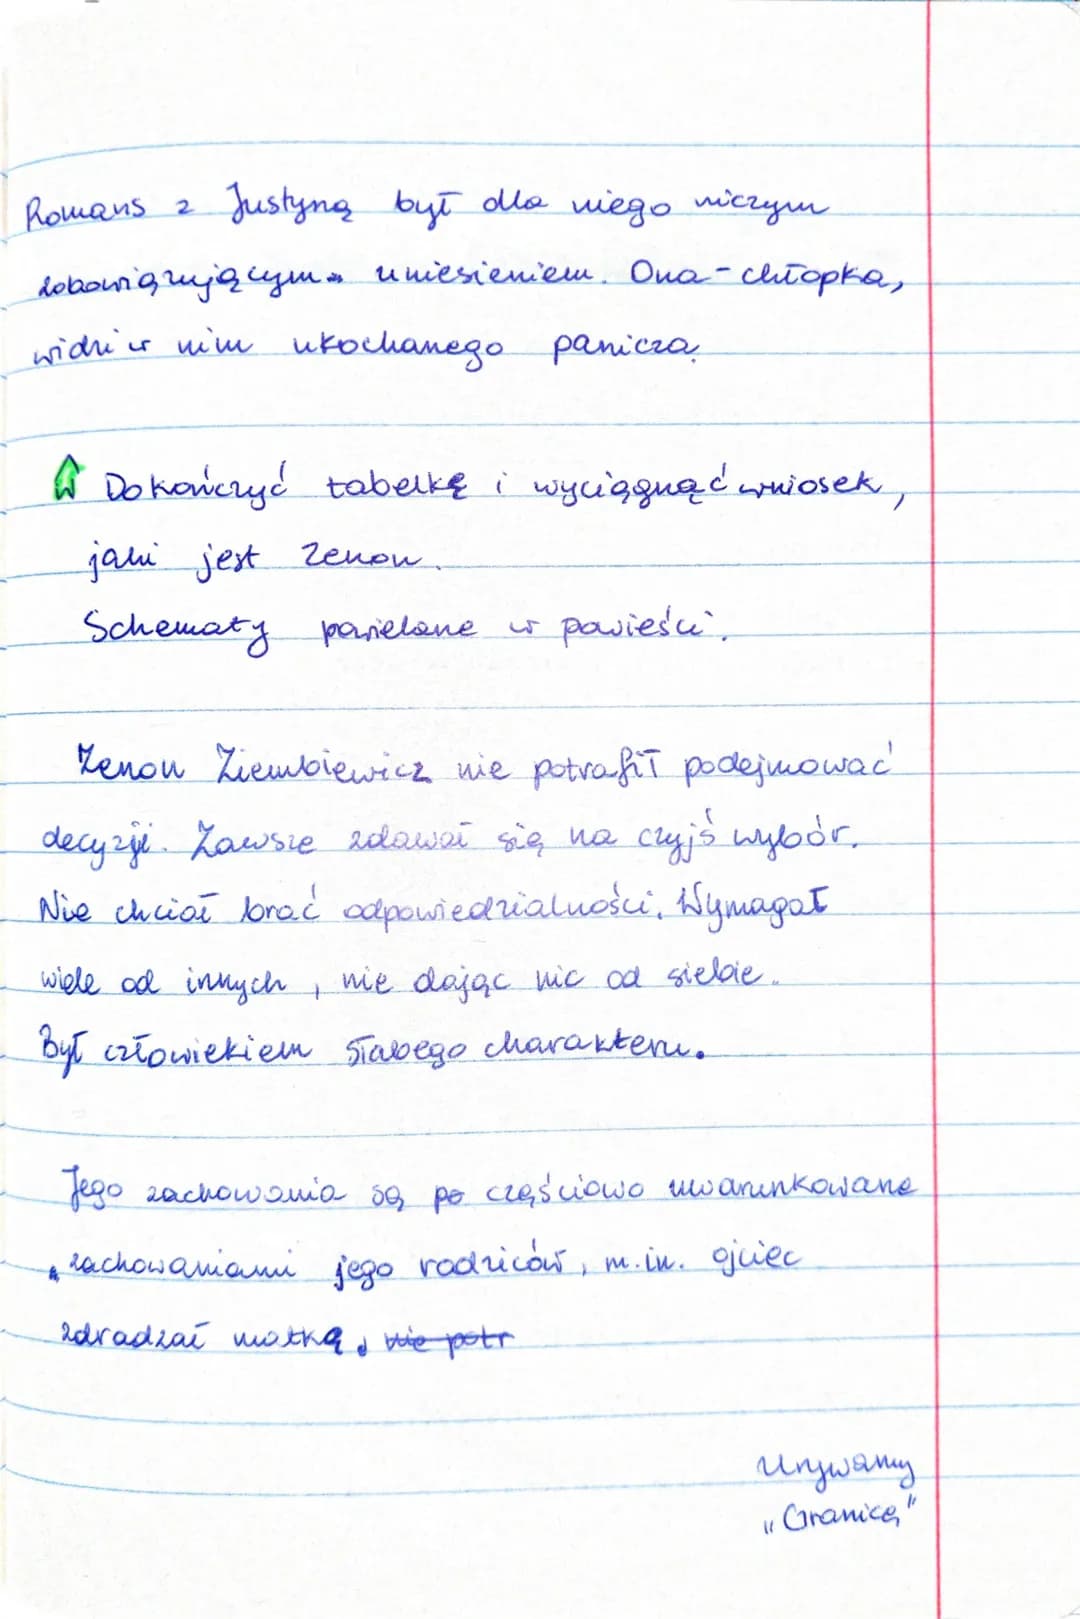 Romans z Justyną był dla niego niczym
zobowiązującym uniesieniem. Ona - chłopka,
widzi w nim ukochanego panicza.
Dokończyć tabelkę i wyciągnąć wniosek,
jaki jest Zenon.
Schematy powielane w powieści.
Zenon Ziembiewicz nie potrafił podejmować
decyzji. Zawsze zdawał się na czyjś wybór.
Nie chciał brać odpowiedzialności. Wymagał
wiele od innych, nie dając nic od siebie.
Był człowiekiem słabego charakteru.
Jego zachowania są po częściowo uwarunkowane
zachowaniami jego rodziców, m.in. ojciec
zdradzał matkę, nie potr
Urywamy
„Granicę"